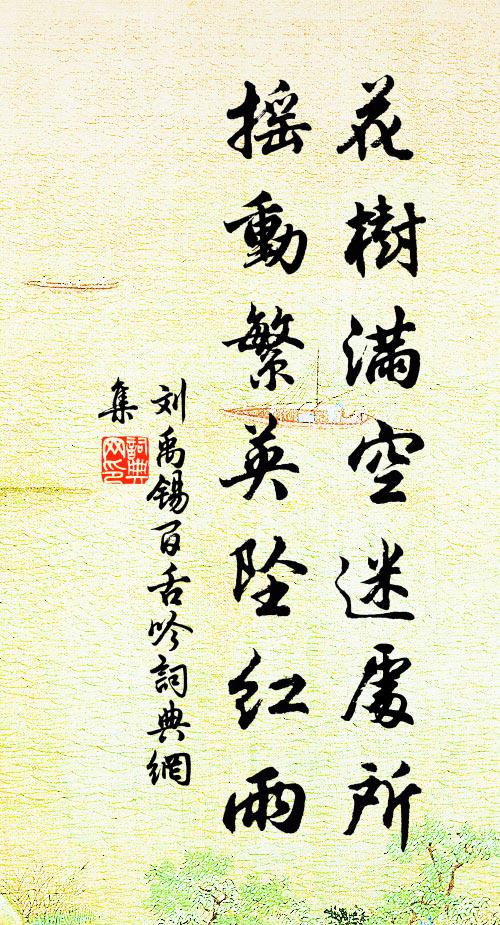 花樹满空迷處所
摇動繁英坠红雨
刘禹锡百舌吟詞典網
集
詞典网印